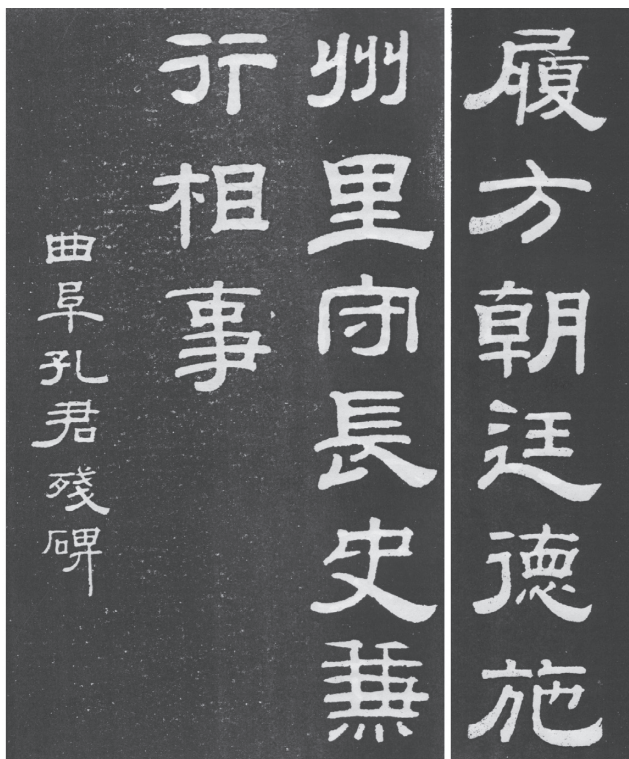 履方朝廷德施
州里守長史兼
行相事
曲阜孔君殘碑